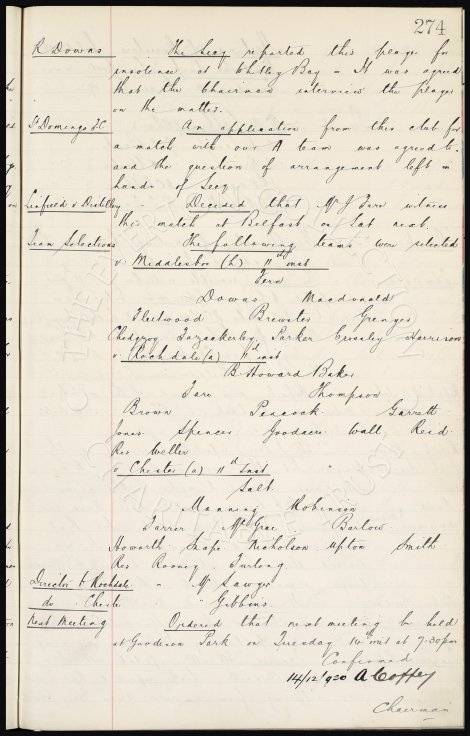 274
R Downs The Secy reported this player for
insolence at Whitley Bay – It was agreed
that the Chairman interview the player
on the matter.
St Domingo FC An application from this club for
a match with our A team was agreed to.
and the question of arrangement left in
hands of Secy
Linfield v Distillery – Decided that Mr J Fare witness
this match at Belfast on Sat next.
Team Selections The following teams were selected
v. Middlesbro (h) 11th inst
Fern
Downs Macdonald
Fleetwood Brewster Grenyer
Chedgzoy Fazackerley Parker Crossley Harrison
v Rochdale (a) 11th inst
B. Howard Baker
Fare Thompson
Brown Peacock Garrett
Jones Spencer Goodacre Wall Reid.
Res Weller
v Chester (a) 11th Inst
Salt.
Manning Robinson
Farrer McGrae Barlow.
Howarth Snape Nicholson Upton Smith
Res Rooney. Furlong.
Director to Rochdale – Mr Sawyer
do Chester " Gibbins
Next Meeting Ordered that next meeting be held
at Goodison Park on Tuesday 14th inst at 7.30pm
Confirmed
14/12/1920 A Coffey
Chairman
THE EVERTON
CHARITABLE TRUST